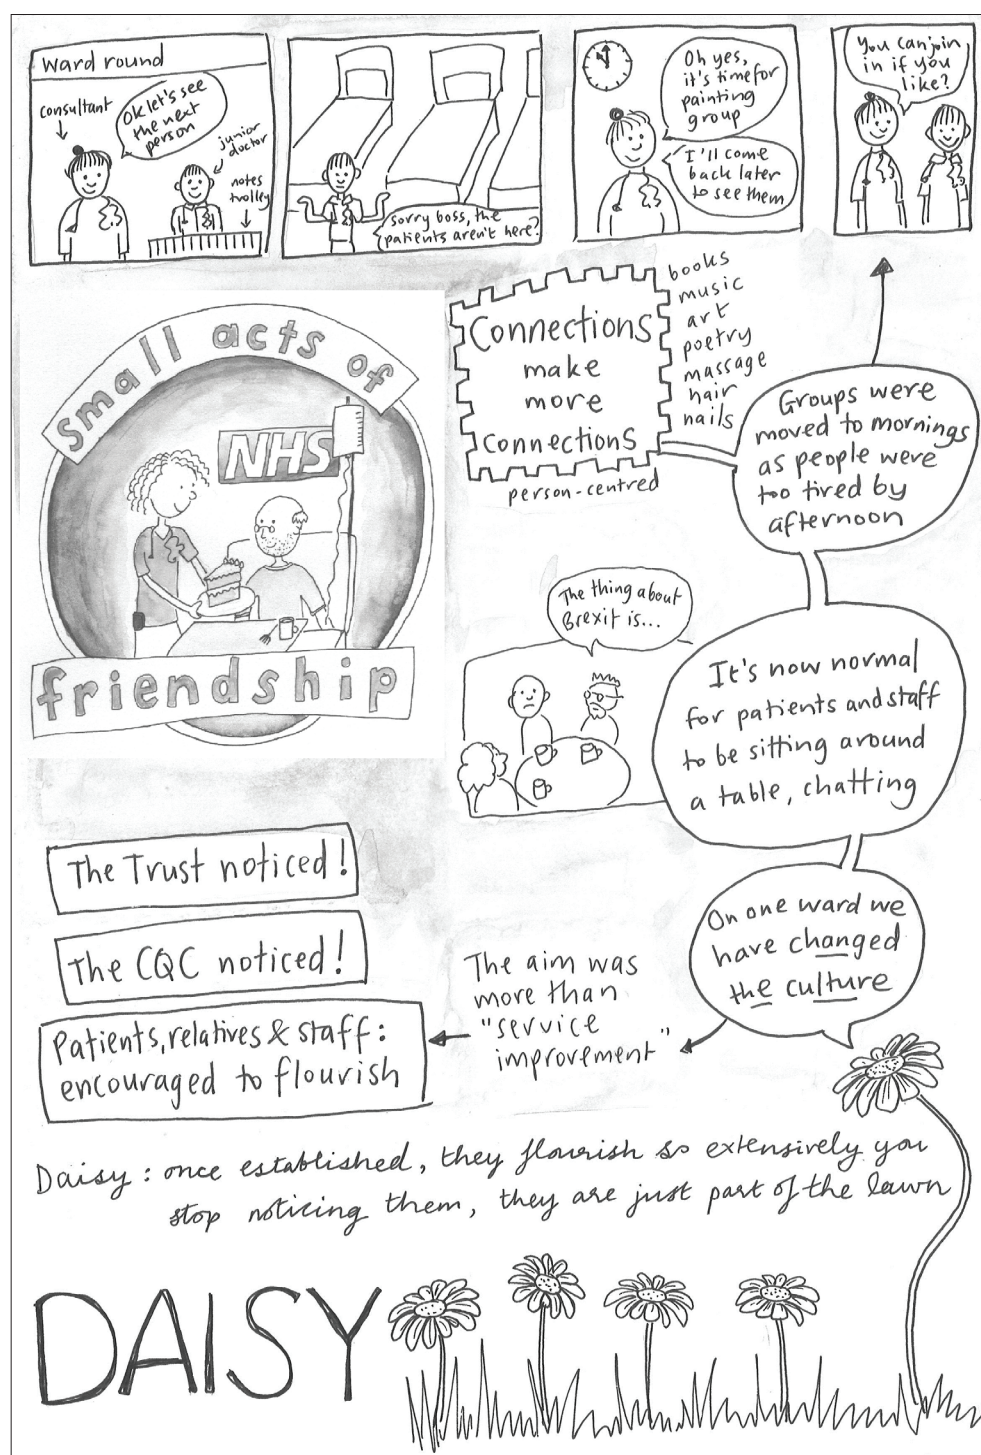 ward round
consultant
Ok let's see
the next
person
junior
doctor
notes
trolley
sorry boss, the
patients aren't here?
Oh yes,
it's time for
painting
group
I'll come
back later
to see them
You can join
in if you
like?
small acts of
NHS
friendship
Connections
make
more
connections
person-centred
books
music
art
poetry
massage
hair
nails
Groups were
moved to mornings
as people were
too tired by
afternoon
The thing about
Brexit is...
It's now normal
for patients and staff
to be sitting around
a table, chatting
On one ward we
have changed
the culture
The aim was
more than
"service
improvement"
The Trust noticed!
The CQC noticed!
Patients, relatives & staff:
encouraged to flourish
Daisy: once established, they flourish so extensively you
stop noticing them, they are just part of the lawn
DAISY